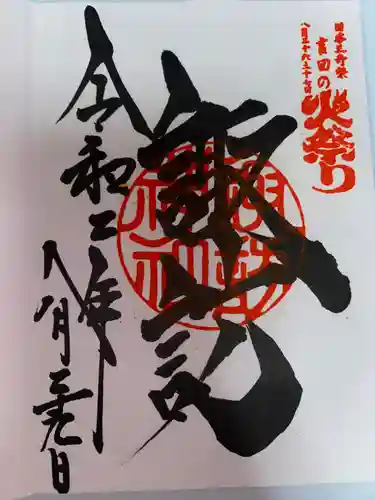 日本三奇祭
吉田の火祭り
八月二十六二十七日
諏訪
諏訪神社
令和二年
八月二十九日